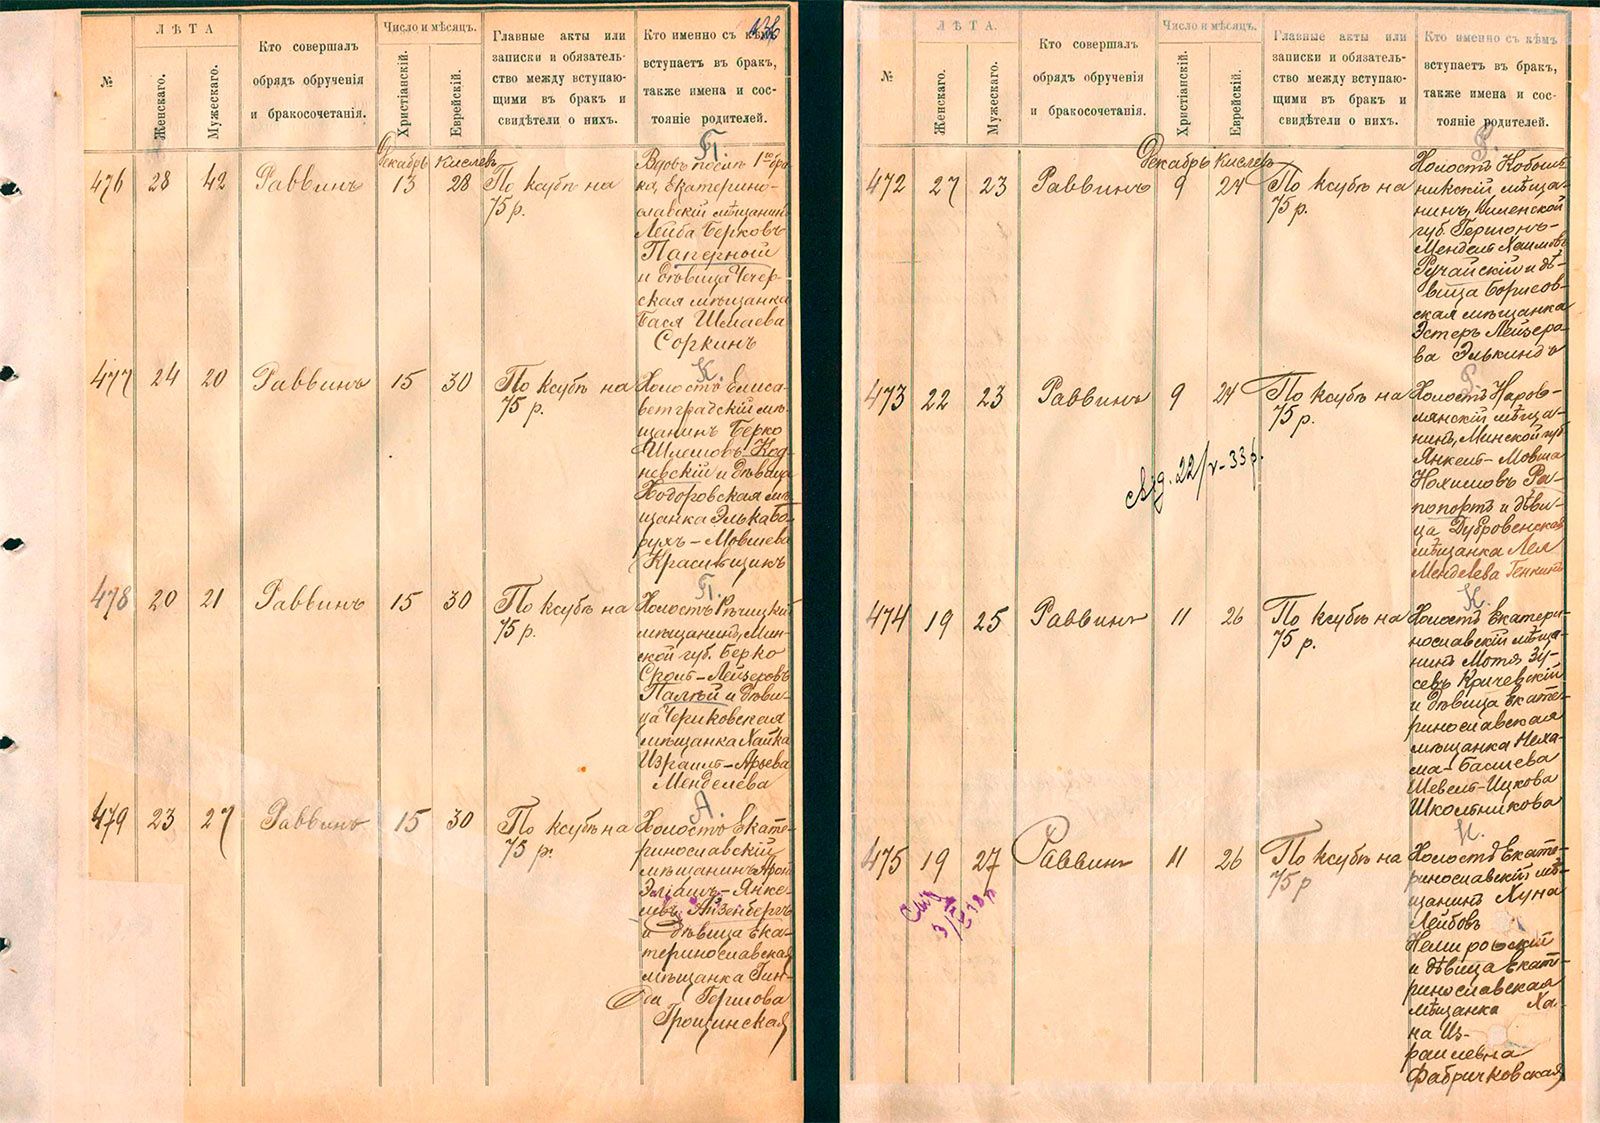 №
ЛѢТА
Женскаго.
Мужескаго.
Кто совершалъ
обрядъ обрученія
и бракосочетанія.
Число и мѣсяцъ.
Христіанскій.
Еврейскій.
Главные акты или
записки и обязатель-
ство между вступаю-
щими въ бракъ и
свидѣтели о нихъ.
Кто именно съ кѣмъ
вступаетъ въ бракъ,
также имена и сос-
тояніе родителей.
Декабрь Кислев
П.
476 28 42 Раввинъ 13 28 По ксубѣ на
75 р.
Вдовъ послѣ 1го бра
ка, Екатерино-
славскій мѣщанинъ
Лейба Берковъ
Паперный
и дѣвица Чечер-
ская мѣщанка
Бася Шмаева
Соркинъ
К.
477 24 20 Раввинъ 15 30 По ксубѣ на
75 р.
Холостъ Елиса-
ветградскій мѣ-
щанинъ Берко
Шлемовъ
невскій и дѣвица
Ходоровская мѣ-
щанка Элька Бо-
рухъ-Мовшева
Красивщикъ
П.
478 20 21 Раввинъ 15 30 По ксубѣ на
75 р.
Холостъ Рѣчицкій
мѣщанинъ, Мин-
ской губ. Берко
Сроль-Лейзеровъ
Палѣй и дѣви-
ца Чериковская
мѣщанка Хайка
Израиль-Арьева
Менделева
А.
479 23 27 Раввинъ 15 30 По ксубѣ на
75 р.
Холостъ Екате-
ринославскій
мѣщанинъ Арон
Эліашъ-Янке-
левъ Айзенбергъ
и дѣвица Ека-
теринославская
мѣщанка Гин-
да Гершова
Грощинская
№
ЛѢТА.
Женскаго.
Мужескаго.
Кто совершалъ
обрядъ обрученія
и бракосочетанія.
Число и мѣсяцъ.
Христіанскій.
Еврейскій.
Главные акты или
записки и обязатель-
ство между вступаю-
щими въ бракъ и
свидѣтели о нихъ.
Кто именно съ кѣмъ
вступаетъ въ бракъ,
также имена и сос-
тояніе родителей.
Декабрь Кислев
Р.
472 27 23 Раввинъ 9 24 По ксубѣ на
75 р.
Холостъ Кобыль
никскій мѣща-
нинъ, Виленской
губ. Гершонъ-
Мендель Хаимовъ
Ручайскій и дѣ-
вица Борисов-
ская мѣщанка
Эстеръ Лейзеро
ва Элькиндъ
Р.
473 22 23 Раввинъ 9 24 По ксубѣ на
75 р.
22/V-33 р.
Холостъ Наров-
лянскій мѣща-
нинъ, Минской губ
Янкель-Мовша
Нохимовъ Ра-
попортъ и дѣви-
ца Дубровенская
мѣщанка Лея
Менделева Генкинъ
К.
474 19 25 Раввинъ 11 26 По ксубѣ на
75 р.
Холостъ Екатери-
нославскій мѣща-
нинъ Мотя Зу-
севъ Кричевскій
и дѣвица Екате-
ринославская
мѣщанка Неха-
ма-Басшева
Шевель-Ицкова
Школьникова
Н.
475 19 27 Раввинъ 11 26 По ксубѣ на
75 р
Холостъ Екате-
ринославскій мѣ-
щанинъ Хуна
Лейбовъ
Немировскій
и дѣвица Екате-
ринославская
мѣщанка Ха-
на Из-
раилевна
Фабричковская